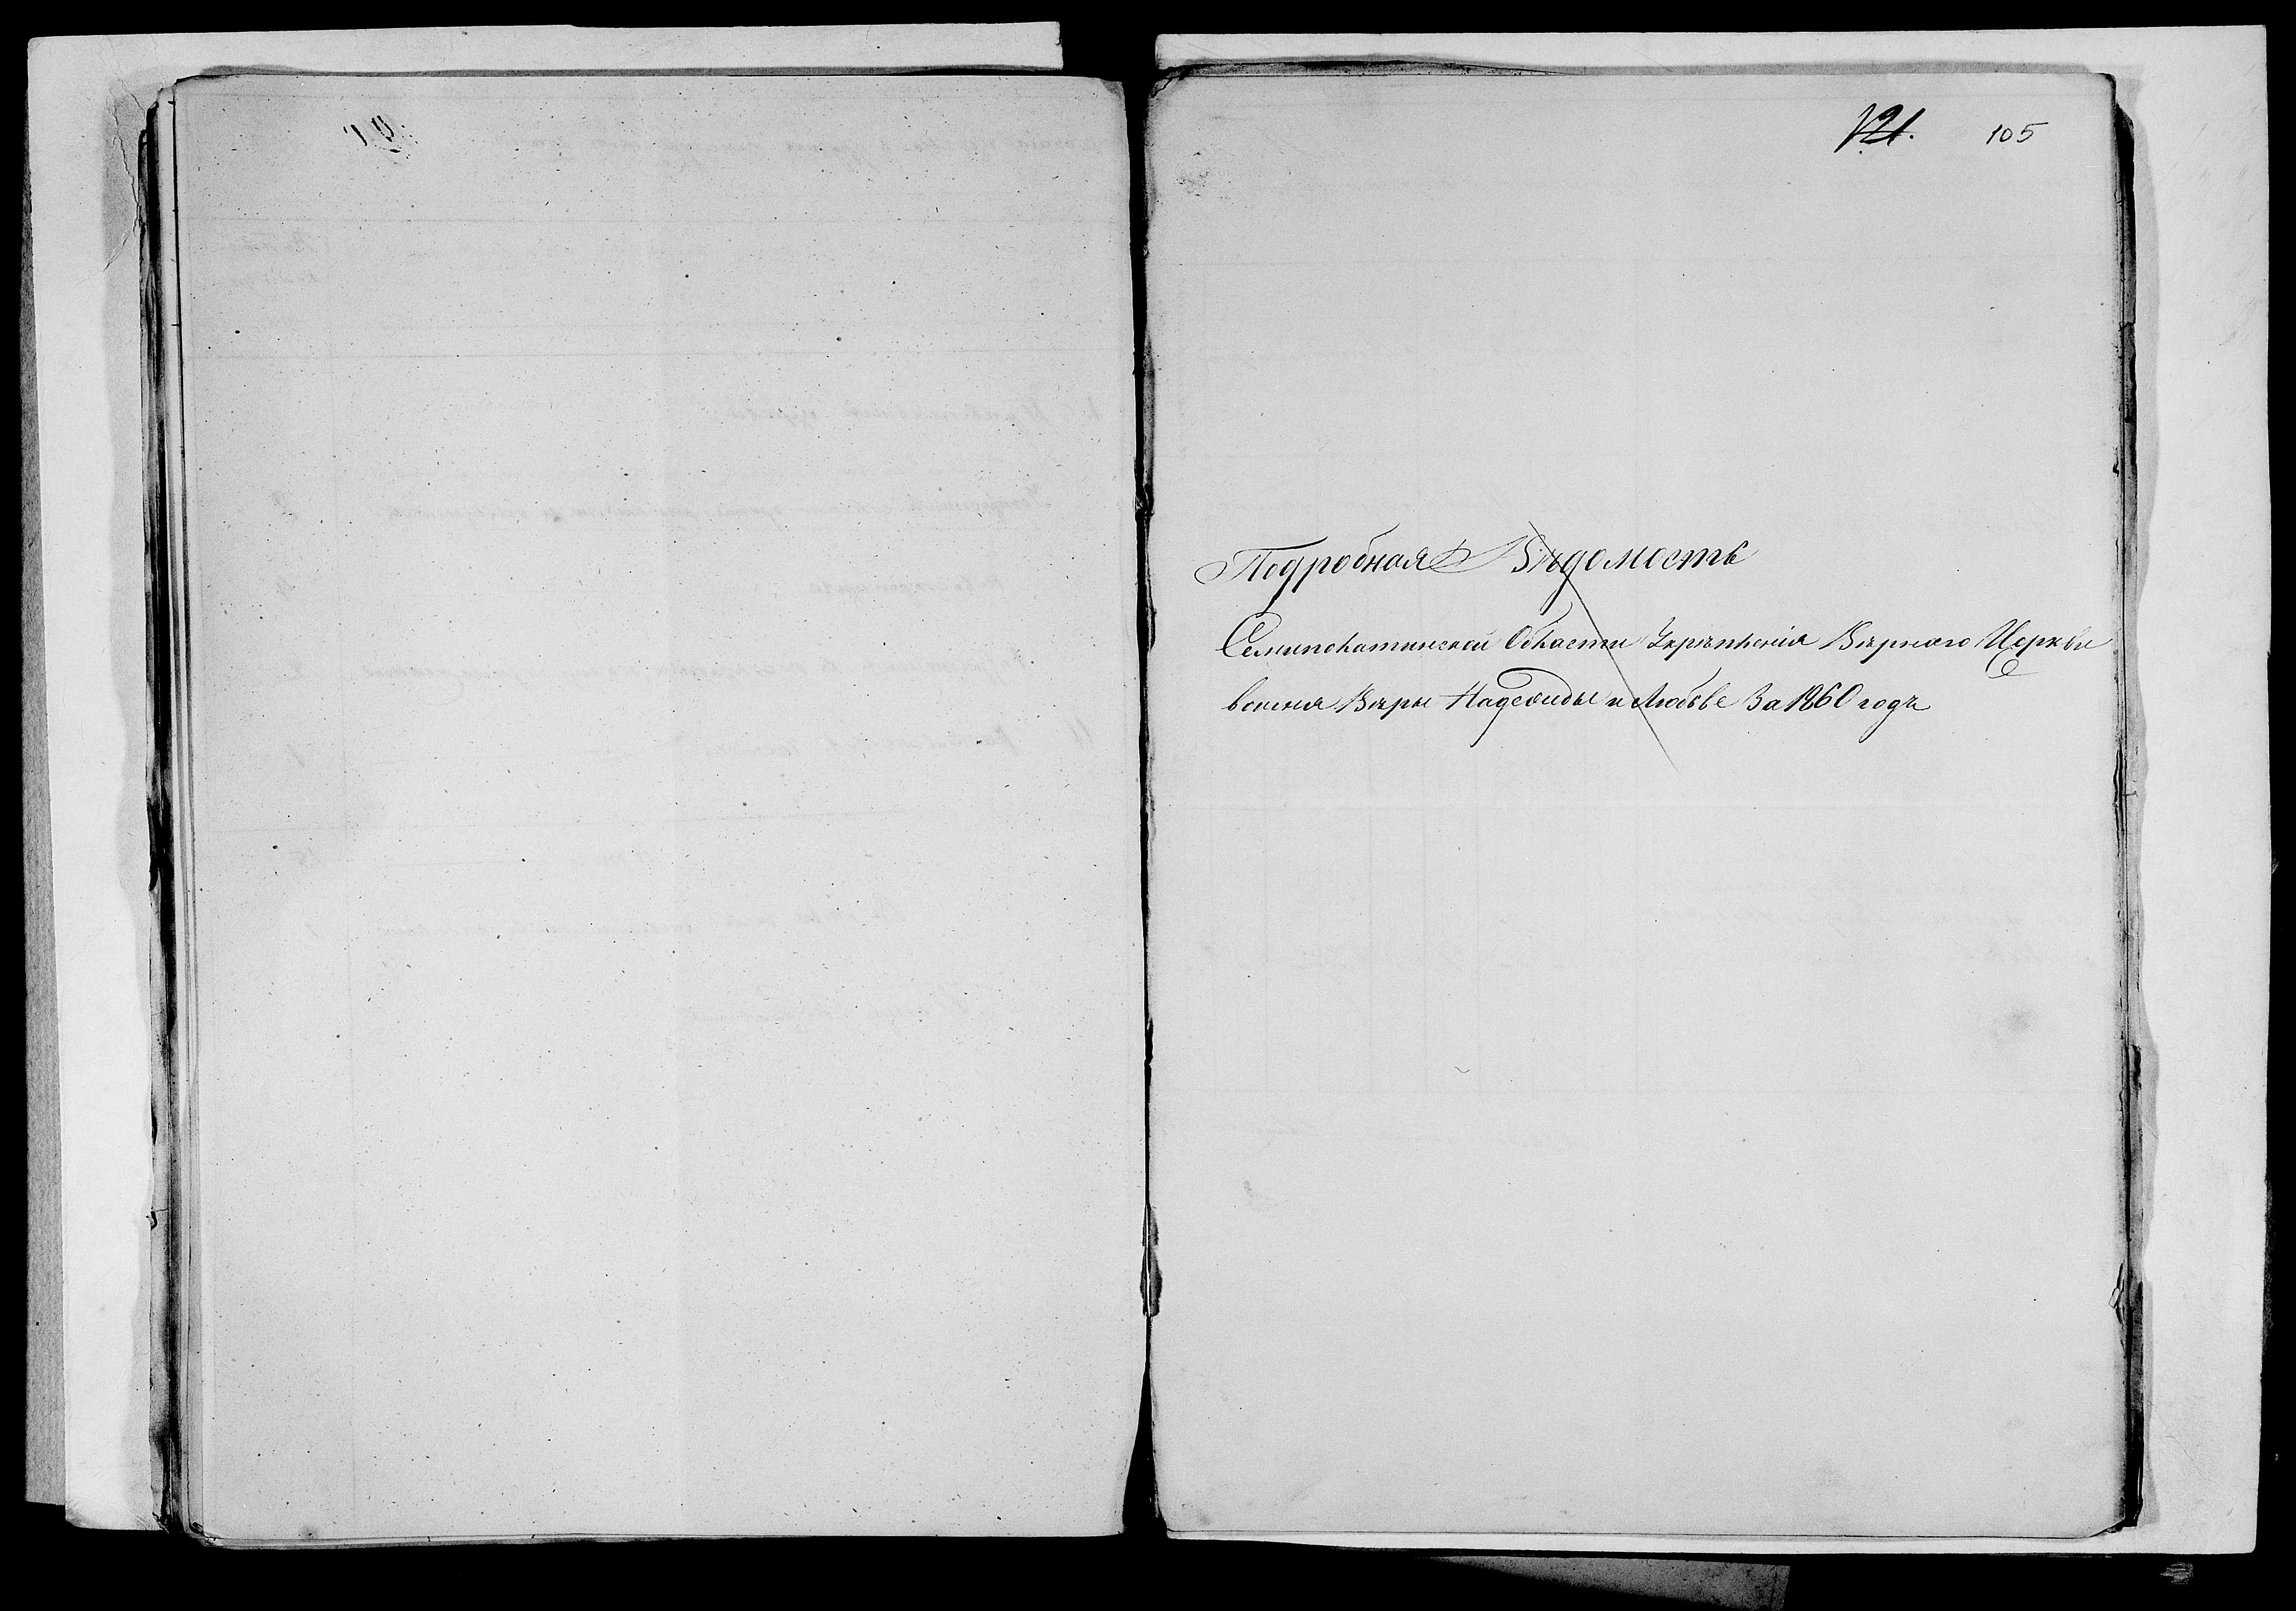 121. 105
Подробная Вѣдомость
Семипалатинской Области Укрѣпленія Вѣрнаго Церкви
воимя Вѣры Надежды и Любьве За 1860 годъ